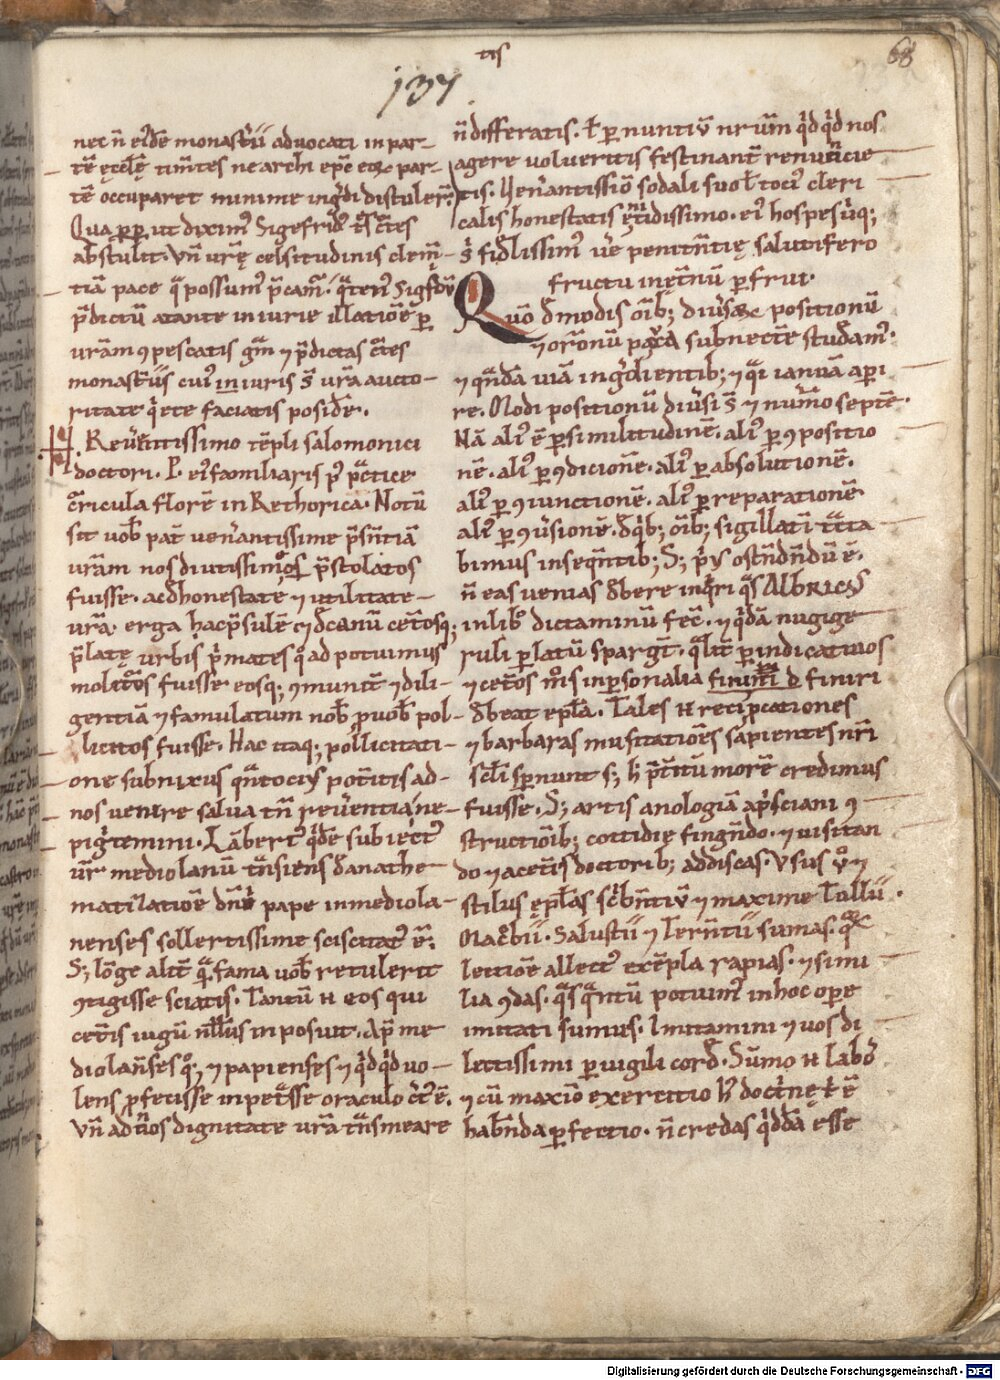 tis
137
68
nec n̄ eiꝰdē monasterii advocati in par-
tē ęccl̄ę tim̄tes ne archi ep̄e eoꝝ par-
tē occuparet minime ingͥdi distulerͣ.
Qua ꝓpt̄ ut diximꝰ Sigefridꝰ
abstulit. Vn̄ urę̄ celsitudinis clem̄-
tiā pace q̄ possumꝰ p̄camͬ. q̄tenꝰ Sigfdū
p̄dictū a tante iniurie illatiōe ꝑ
urām ꝯpescatis gr̄am ⁊ p̄dictas
monasteriis cuiꝰ in iuris s̄ ur̄a aucto-
ritate qͥete faciatis posidē.
Reuērntissimo tēpli salomonici
doctori. P. eiꝰ familiaris
cͥricula florē in Rethorica. Notū
sit uob̄ pat̄ uen̄antissime p̄sn̄tiā
urām nos diutissime p̄stolatos
fuisse. ac d̄ honestate ⁊ utilitate
ur̄a. erga hāc p̄sulē ⁊ decanū cet̄osq;
p̄latę urbis pͥmates qͦad potuimus
molitos fuisse eosq; ꝯmunit̄ ⁊ dili-
gentiā ⁊ famulatum nob̄ ꝓ uob̄ pol-
licitos fuisse. Hac itaq; pollicitati-
one subnixus qn̄tociꝰ pot̄itis ad-
nos uenire salua tn̄ reuerentia ne-
pigͥtemini. Lābertꝰ qͥdē subiectꝰ
ur̄ mediolanū t̄nsiens d̄ anathe-
matizatiōe dn̄i pape in mediola-
nenses sollertissime sciscitatꝰ ē.
S; lōge alit̄ qͣ fama uob̄ retulerit
ꝯtigisse sciatis. Tantū n̄ eos qui
cet̄is iugū nullius inposuit. Ap̄ me
diolan̄ses qͦ; ⁊ papienses ⁊ qͥdqͥd uo-
lens ꝓfecisse inpetͣsse oraculo ē.
Vn̄ ad n̄os dignitate ur̄a t̄nsmeare
n̄ differatis. ł ꝑ nuntiū nr̄um qͥdqͥd nos
agere volueritis festinant̄ renuncie
tis. Ven̄antissiō sodali suo ł tociꝰ cleri
calis honestatis nitidissimo. eiꝰ hospes
s̄ fidelissimꝰ uę penitn̄tię salutifero
fructu in ęt̄nū ꝑfrui.
Quō d̄ modis oīb; diuersaꝝ positionū
⁊ orōnū pauca subnect̄e studamꝰ.
⁊ qn̄dā uiā ingͥdientib; ⁊ qͣi ianuā aꝑi
re. Modi positionū diuersi s̄ ⁊ num̄o septē.
Nā aliꝰ ē ꝑ similitudinē. aliꝰ ꝑ ꝯpositio
nē. aliꝰ ꝑ ꝯdicionē. aliꝰ ꝑ absolutionē.
aliꝰ ꝑ ꝯiunctionē. aliꝰ ꝑ reparationē
aliꝰ ꝑ ꝯuersionē. d̄ qͥb; oīb; sigillatī tͣcta
bimus in seqn̄tib; S; pͥꝰ ostn̄dn̄dū ē.
n̄ eas uenias d̄bere inqͥri qͣs Albricꝰ
in libͦ dictaminū fec̄. ⁊ qͥdā nugige
ruli ꝑ latū spargt̄. qͣlit̄ ꝑ indicatiuos
⁊ cet̄os m̄s inꝑsonalia finiri
d̄beat epl̄a. Tales n̄ recipcationes
⁊ barbaras musitatiōes sapientes nr̄i
scl̄i sꝑnunt s; h̄ pͣtitū morē credimus
fuisse. S; artis anologiā apͥsciani ꝯ
structiōib; cottidię fingn̄do. ⁊ uisitan
do ⁊ a cet̄is doctorib; addiscas. Vsus ūͦ ⁊
stilus ępl̄as scͥbn̄tiū ⁊ maxime Tulliū.
Macͦbiū. Salustiū ⁊ Tern̄tiū sumas.
lectiōe allectꝰ exēpla rapias. ⁊ simi
lia ꝯdas. qͣs qͣntū potuimꝰ in hoc oꝑe
imitati sumus. Imitamini ⁊ uos di
lectissimi ꝑuigili cord̄. Sūmo n̄ labōr
⁊ cū maxiō exercitio hͥ doctͥnę ē
habn̄da ꝑfectio. n̄ credas qͥddā esse
Digitalisierung gefördert durch die Deutsche Forschungsgemeinschaft - DFG